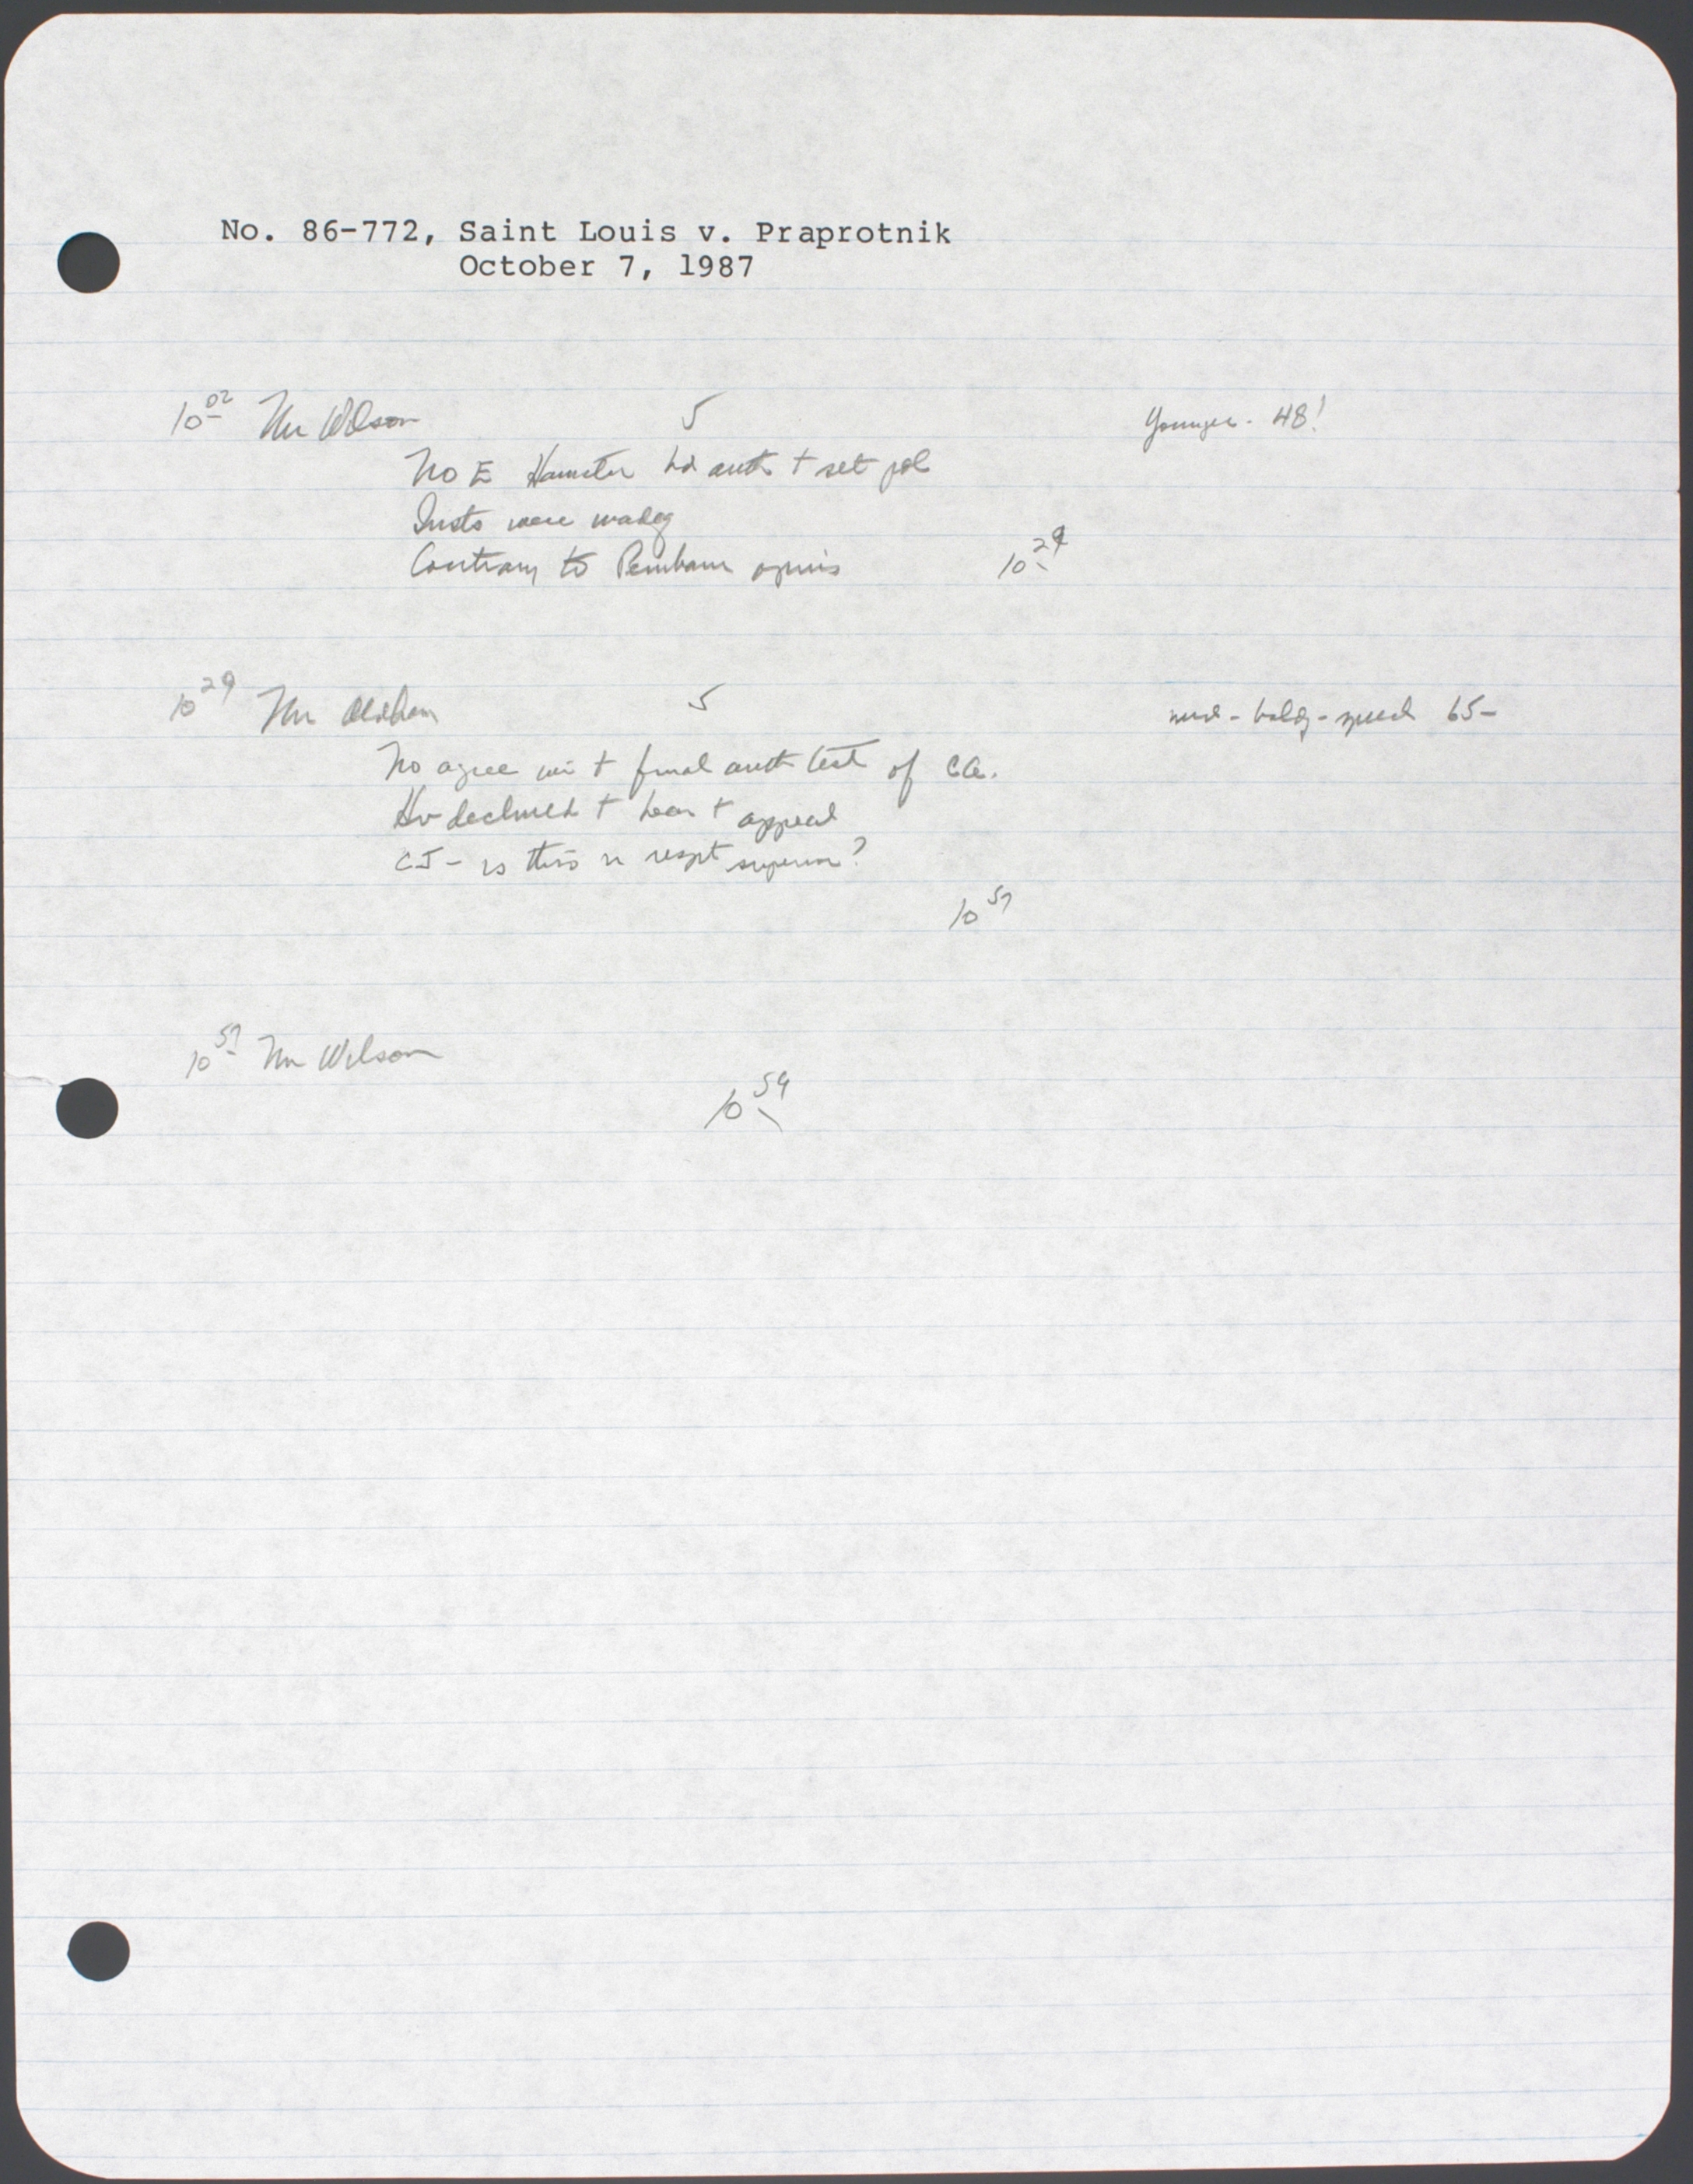 No. 86-772, Saint Louis v. Praprotnik
October 7, 1987
10 02 Mr Wilson 5 Younger - 48!
No E Hamster hd auth t set pol
Insts were inadeq
Contrary to Pembaur opins 10 29
10 29 Mr Oldham 5 - baldg - 65-
No agree wi t final auth test of CA.
Hv declined t hear t appeal
CJ - is this n respt superior?
10 57
10 57 Mr Wilson
10 59